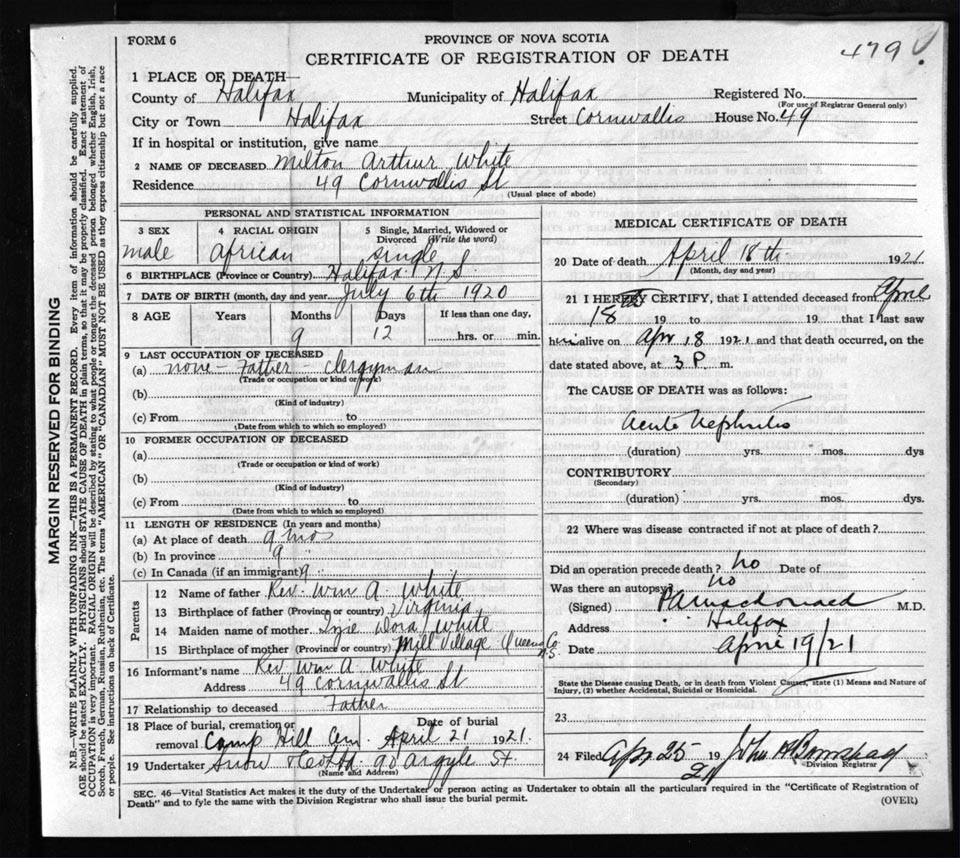 FORM 6
PROVINCE OF NOVA SCOTIA
CERTIFICATE OF REGISTRATION OF DEATH
479
1 PLACE OF DEATH—
County of Halifax Municipality of Halifax Registered No.
(For use of Registrar General only)
City or Town Halifax Street Cornwallis House No. 49
If in hospital or institution, give name
2 NAME OF DECEASED Milton Arthur White
Residence 49 Cornwallis St
(Usual place of abode)
PERSONAL AND STATISTICAL INFORMATION
3 SEX 4 RACIAL ORIGIN 5 Single, Married, Widowed or Divorced (Write the word)
male African single
6 BIRTHPLACE (Province or Country) Halifax N S
7 DATE OF BIRTH (month, day and year) July 6th 1920
8 AGE Years Months Days If less than one day,
9 12 hrs. or min.
9 LAST OCCUPATION OF DECEASED
(a) none - Father - clergyman
(Trade or occupation or kind of work)
(b)
(Kind of industry)
(c) From to
(Date from which to which so employed)
10 FORMER OCCUPATION OF DECEASED
(a)
(Trade or occupation or kind of work)
(b)
(Kind of industry)
(c) From to
(Date from which to which so employed)
11 LENGTH OF RESIDENCE (In years and months)
(a) At place of death 9 mos
(b) In province 9 "
(c) In Canada (if an immigrant) 9 "
Parents
12 Name of father Rev. Wm A. White
13 Birthplace of father (Province or country) Virginia
14 Maiden name of mother Dora White
15 Birthplace of mother (Province or country) Mill Village Queens Co N.S.
16 Informant's name Rev Wm A. White
Address 49 Cornwallis St
17 Relationship to deceased Father
18 Place of burial, cremation or removal Camp Hill Cem. Date of burial April 21 1921.
19 Undertaker Snow & Co Ltd 90 Argyle St.
(Name and Address)
MEDICAL CERTIFICATE OF DEATH
20 Date of death April 18th 1921
(Month, day and year)
21 I HEREBY CERTIFY, that I attended deceased from April
18th 19 to 19 that I last saw
him alive on Apr 18 1921 and that death occurred, on the
date stated above, at 3 P. m.
The CAUSE OF DEATH was as follows:
Acute Nephritis
(duration) yrs. mos. dys
CONTRIBUTORY
(Secondary)
(duration) yrs. mos. dys.
22 Where was disease contracted if not at place of death?
Did an operation precede death? no Date of
Was there an autopsy? no
(Signed) M.D.
Address Halifax
Date April 19/21
State the Disease causing Death, or in death from Violent Causes, state (1) Means and Nature of
Injury, (2) whether Accidental, Suicidal or Homicidal.
23
24 Filed Apr 25 19 21 John
Division Registrar
SEC. 46—Vital Statistics Act makes it the duty of the Undertaker or person acting as Undertaker to obtain all the particulars required in the "Certificate of Registration of
Death" and to fyle the same with the Division Registrar who shall issue the burial permit.
(OVER)
MARGIN RESERVED FOR BINDING
N.B.—WRITE PLAINLY WITH UNFADING INK—THIS IS A PERMANENT RECORD. Every item of information should be carefully supplied.
AGE should be stated EXACTLY. PHYSICIANS should STATE CAUSE OF DEATH in plain terms, so that it may be properly classified. Exact statement of
OCCUPATION is very important. RACIAL ORIGIN will be described by stating to what people or tongue the deceased person belonged whether English, Irish,
Scotch, French, German, Russian, Ruthenian, etc. The terms "AMERICAN" OR "CANADIAN" MUST NOT BE USED as they express citizenship but not a race
or people. See instructions on back of Certificate.